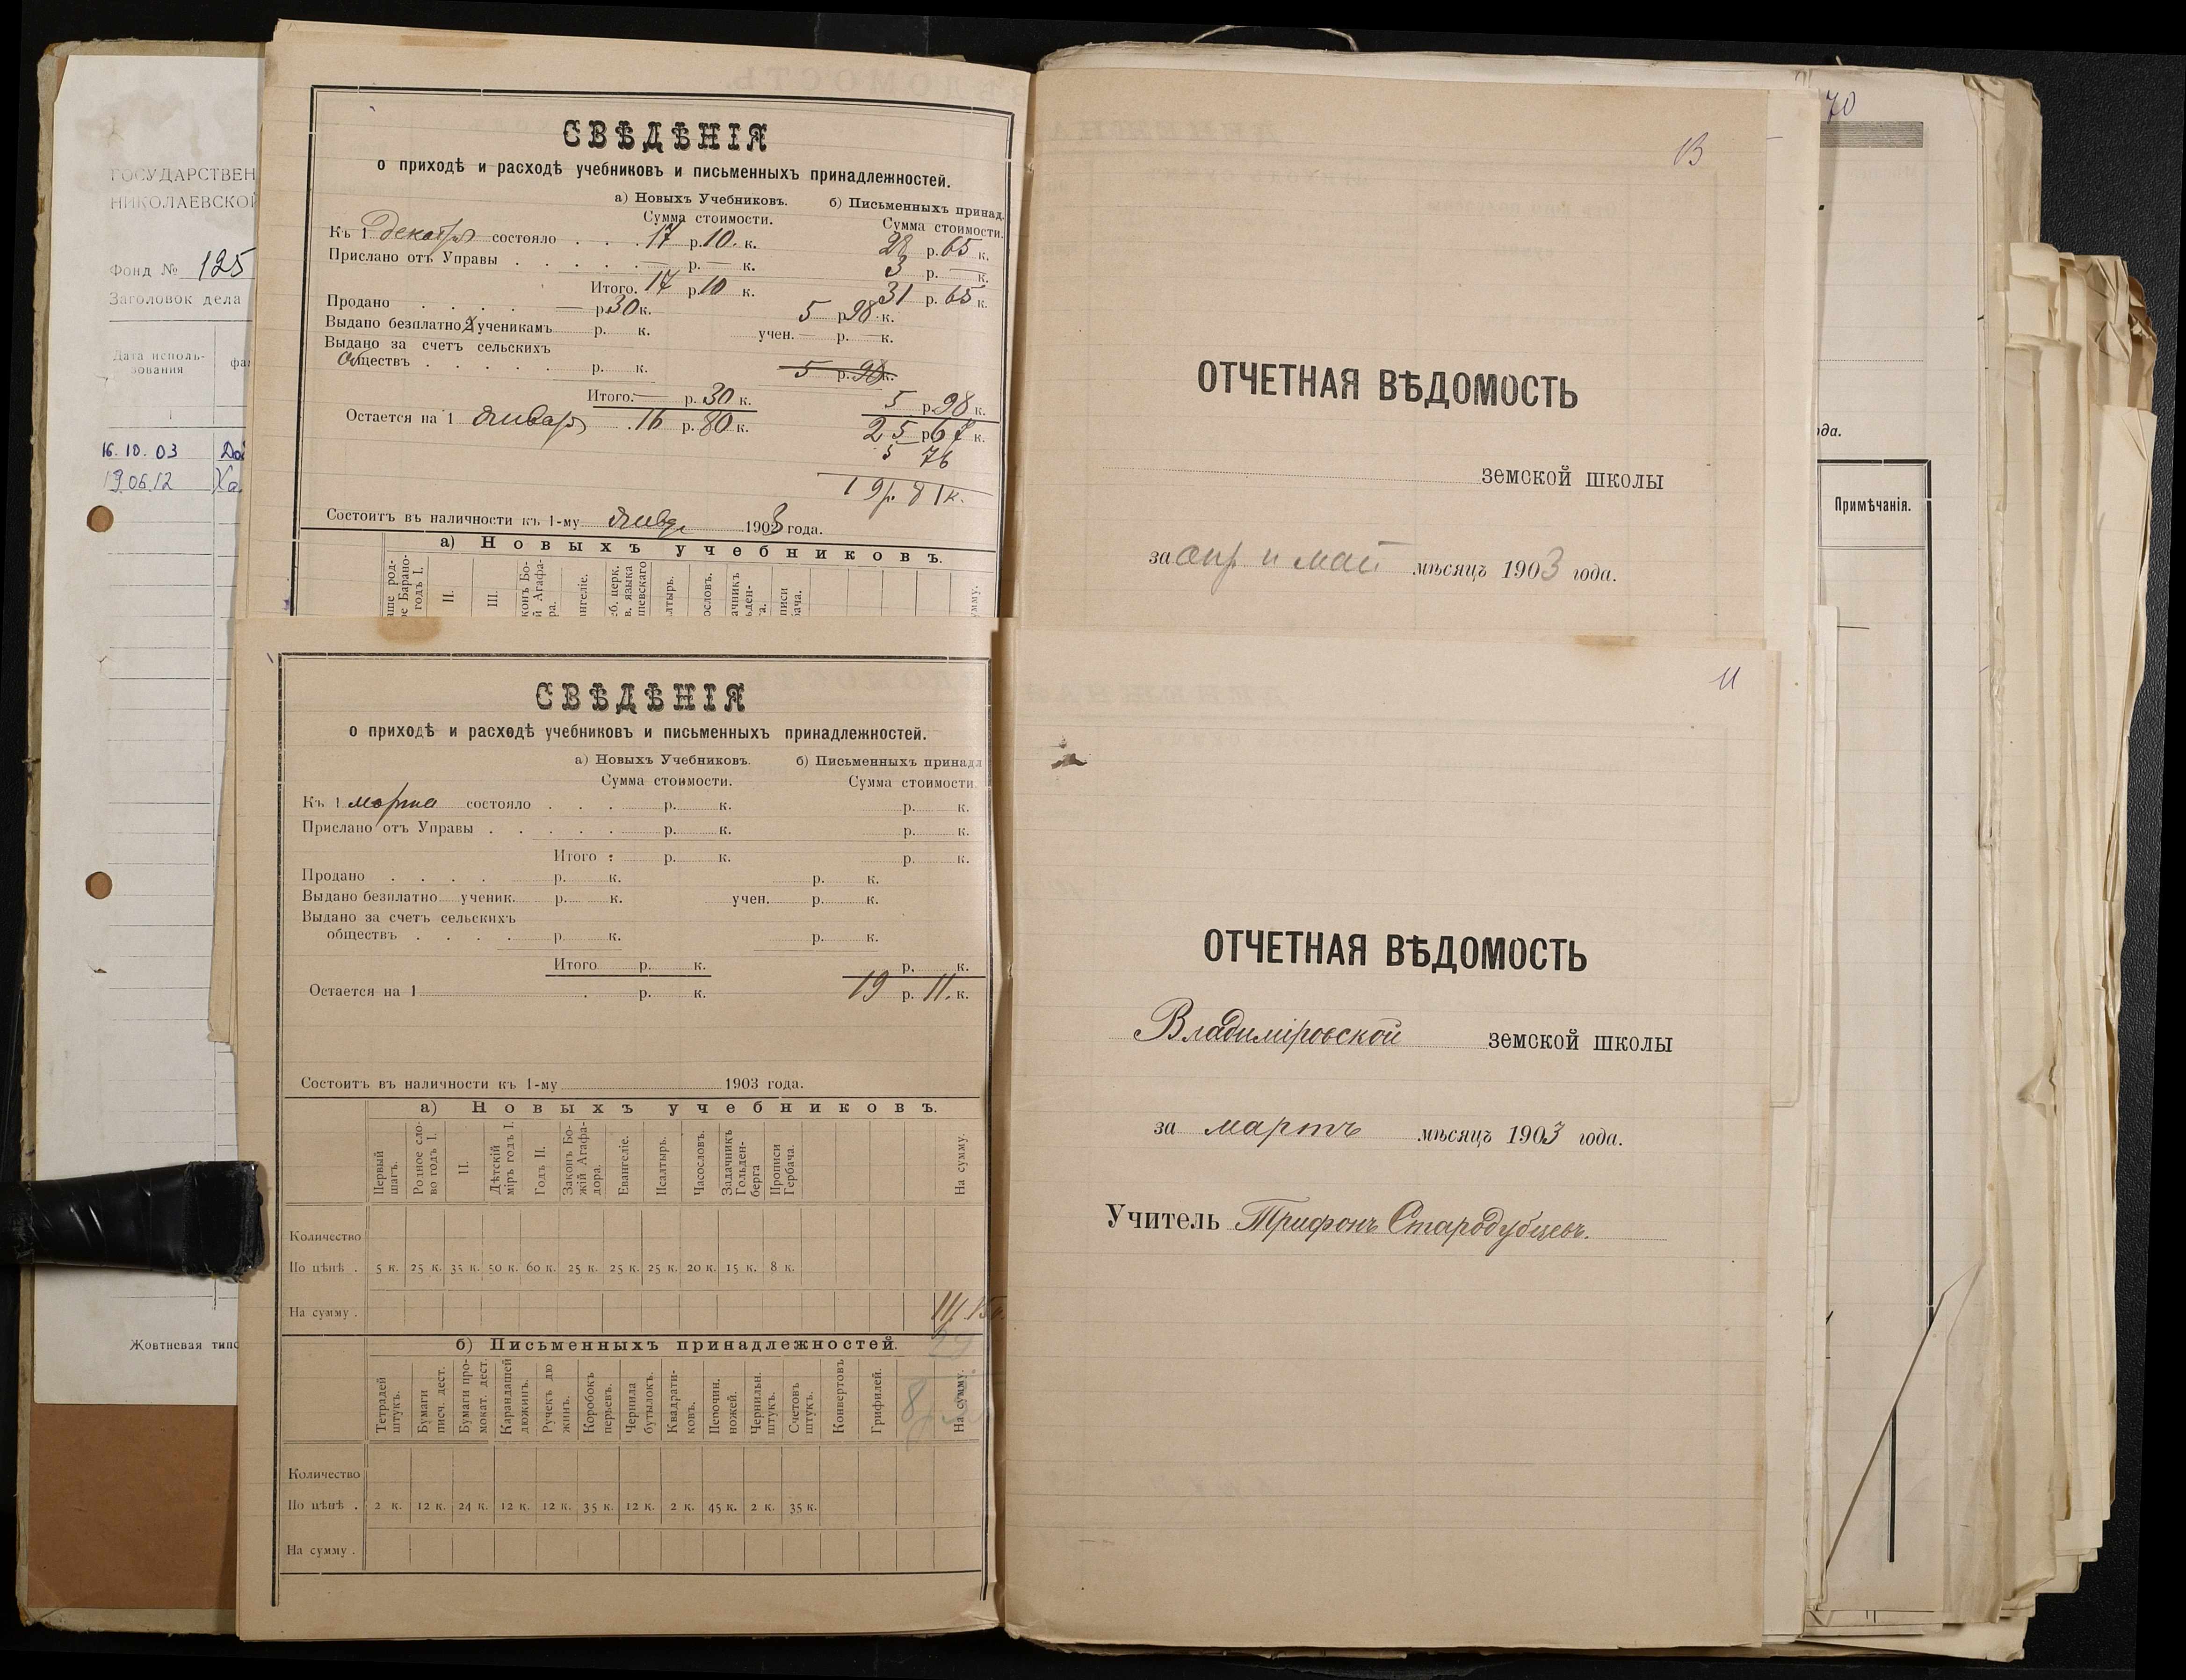 ГОСУДАРСТВЕН
НИКОЛАЕВСКОЙ
Фонд № 125
Заголовок дела
Дата исполь-
зования
фа
16.10.03 До
19.06.12 Ха
Жовтневая типо
СВѢДѢНІЯ
о приходѣ и расходѣ учебниковъ и письменныхъ принадлежностей.
а) Новыхъ Учебниковъ. б) Письменныхъ принад.
Сумма стоимости. Сумма стоимости.
Къ 1 декабря состояло . . . 17 р. 10. к. 28 р. 65 к.
Прислано отъ Управы . . . . . — р. — к. 3 р. — к.
Итого. 17 р 10 к. 31 р. 65 к.
Продано . . . . — р 30 к. 5 р 98 к.
Выдано безплатно 2 ученикамъ р. к. учен. — р. — к.
Выдано за счетъ сельскихъ
обществъ . . . . . р. к. 5 р. 98 к.
Итого. — р. 30 к. 5 р. 98 к.
Остается на 1 январь 16 р. 80 к. 25 р 67 к.
5 76
19 р. 81 к.
Состоитъ въ наличности къ 1-му январ 1903 года.
а) Новыхъ учебниковъ.
II.
III.
СВѢДѢНІЯ
о приходѣ и расходѣ учебниковъ и письменныхъ принадлежностей.
а) Новыхъ Учебниковъ. б) Письменныхъ принадл
Сумма стоимости. Сумма стоимости.
Къ 1 марта состояло . . . р. к. р. к.
Прислано отъ Управы . . . . . р. к. р. к.
Итого : р. к. р. к.
Продано . . . . р. к. р. к.
Выдано безплатно ученик. р. к. учен. р. к.
Выдано за счетъ сельскихъ
обществъ . . . . р к. р. к.
Итого р. к. р. к.
Остается на 1 . р. к. 19 р. 11. к.
Состоитъ въ наличности къ 1-му 1903 года.
а) Новыхъ учебниковъ.
Первый шагъ.
Родное сло-во годъ I.
II.
Дѣтскій міръ годъ I.
Годъ II.
Законъ Бо-жій Агафа-дора.
Евангеліе.
Псалтырь.
Часословъ.
Задачникъ Гольден-берга
Прописи Гербача.
На сумму.
Количество
По цѣнѣ . 5 к. 25 к. 35 к. 50 к. 60 к. 25 к. 25 к. 25 к. 20 к. 15 к. 8 к.
На сумму .
б) Письменныхъ принадлежностей.
Тетрадей штукъ.
Бумаги писч. дест.
Бумаги про-мокат. дест.
Карандашей дюжинъ.
Ручекъ дю-жинъ.
Коробокъ перьевъ.
Чернила бутылокъ.
Квадрати-ковъ.
Перочин. ножей.
Чернильн. штукъ.
Счетовъ штукъ.
Конвертовъ
Грифилей.
На сумму.
Количество
По цѣнѣ . 2 к. 12 к. 24 к. 12 к. 12 к. 35 к. 12 к. 2 к. 45 к. 2 к. 35 к.
На сумму .
13
ОТЧЕТНАЯ ВѢДОМОСТЬ
земской школы
за апр и май мѣсяцъ 1903 года.
11
ОТЧЕТНАЯ ВѢДОМОСТЬ
Владиміровской земской школы
за мартъ мѣсяцъ 1903 года.
Учитель Трифонъ Стародубцевъ.
70
ода.
Примѣчанія.